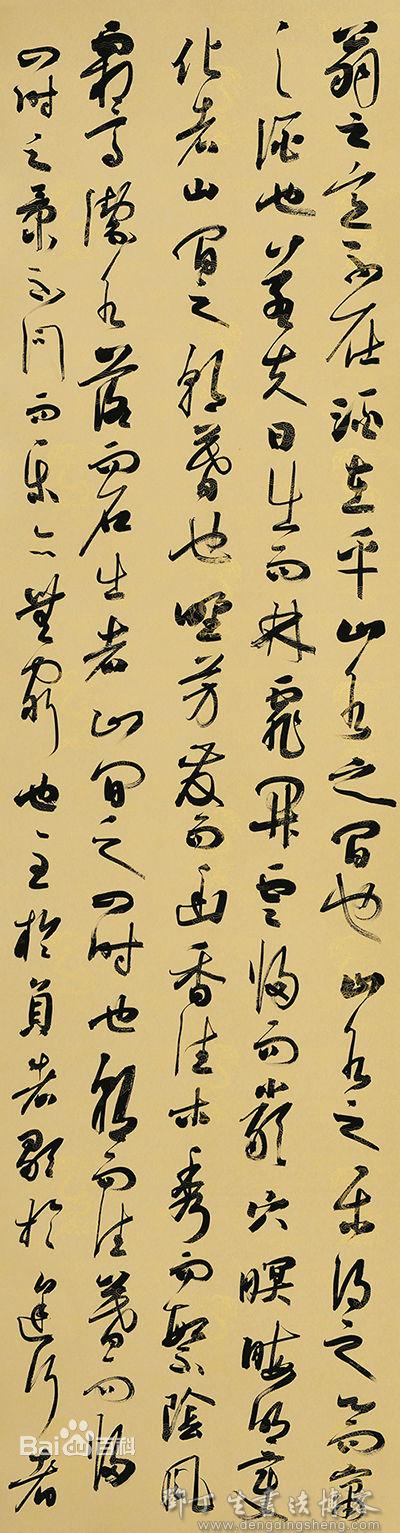 翁之意不在酒在乎山水之間也山水之樂得之心而寓
之酒也若夫日出而林霏開雲歸而巖穴暝晦明變
化者山間之朝暮也野芳發而幽香佳木秀而繁陰風
霜高潔水落而石出者山間之四時也朝而往暮而歸
四時之景不同而樂亦無窮也至於負者歌於途行者
Bai百科
鄧丁生書法博客
www.dengdingsheng.com